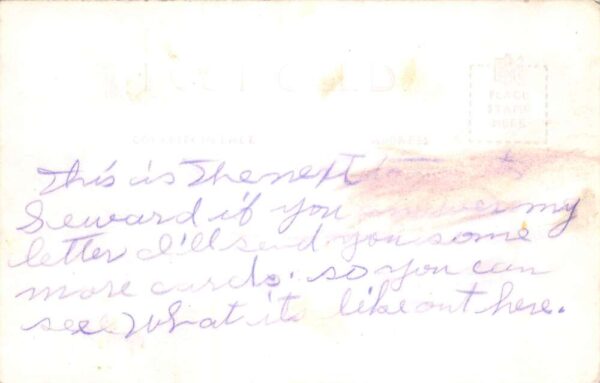 POST CARD
PLACE
STAMP
HERE
CORRESPONDENCE ADDRESS
This is the next to
Seward if you answer my
letter I'll send you some
more cards. so you can
see what its like out here.